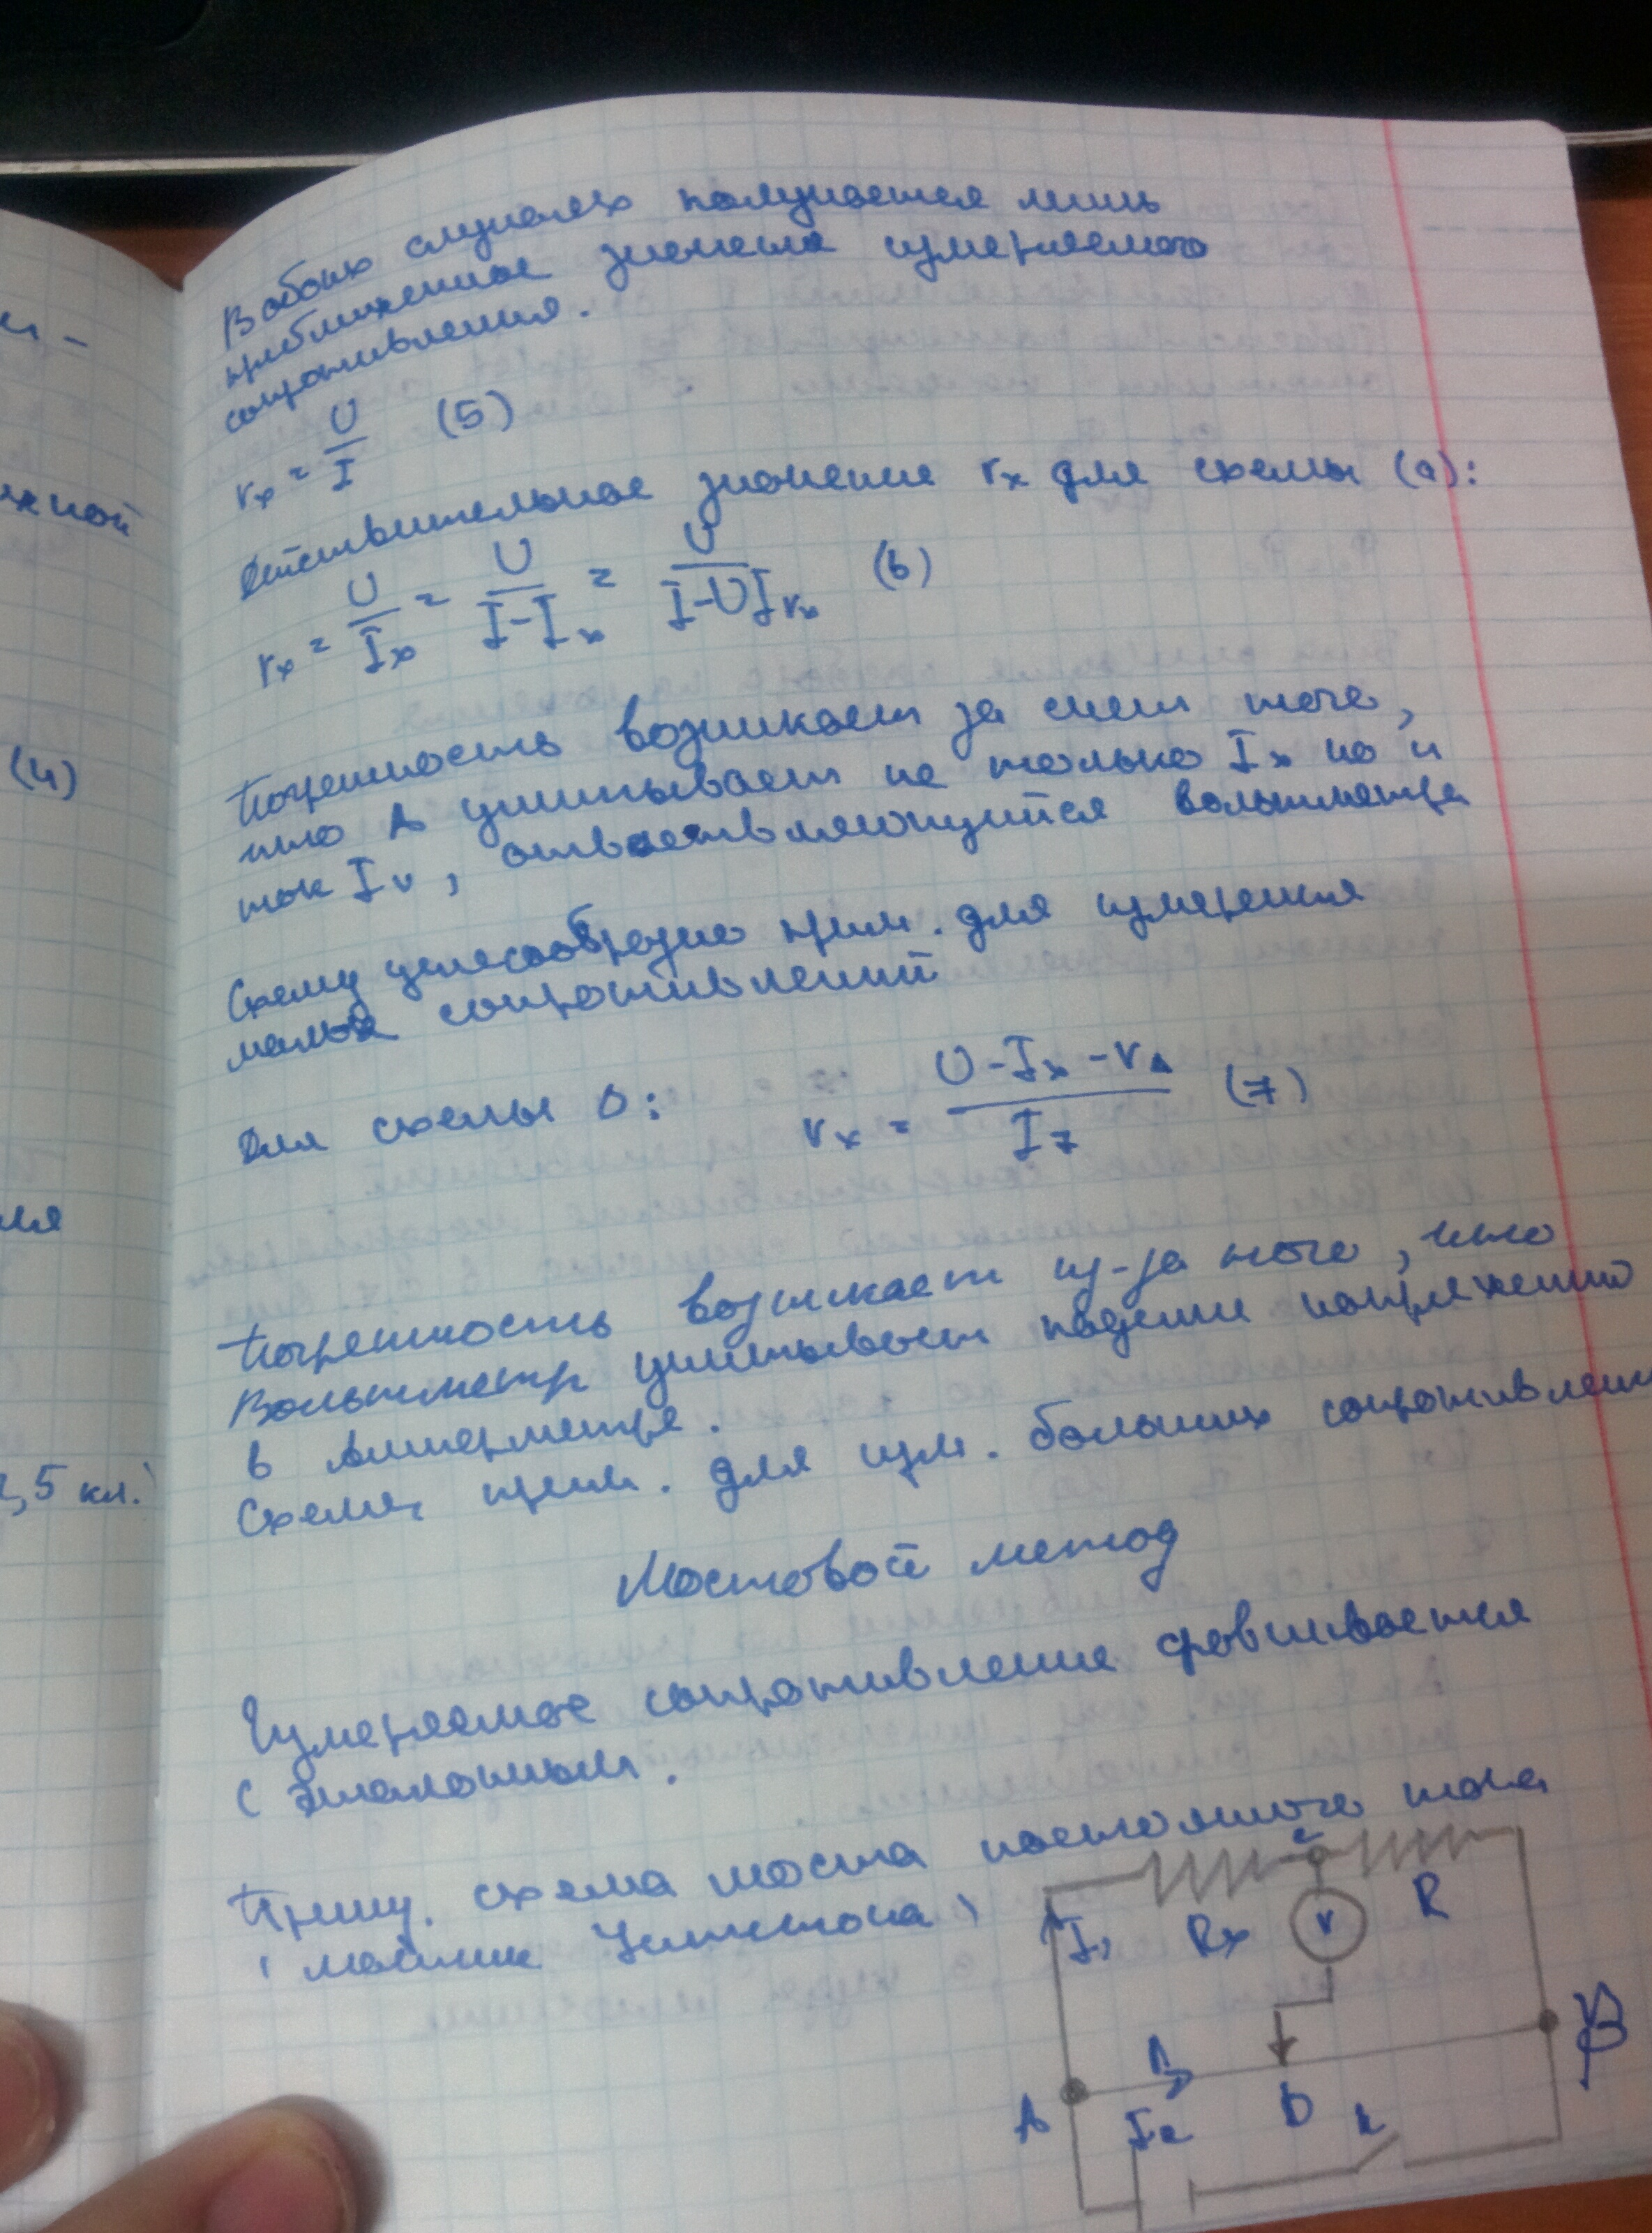 В обоих случаях получается лишь
приближенное значение измеряемого
сопротивления.
rx = U/I (5)
Действительное значение rx для схемы (а):
rx = U/Ix = U/I-Ix = U/I-U (6)
Погрешность возникает за счет того,
что A учитывает не только Ix но и
ток Iv, ответвляющийся вольтметра
Схему целесообразно прим. для измерения
малых сопротивлений
Для схемы б: rx = U-Ix-rA/Ix (7)
Погрешность возникает из-за того, что
Вольтметр учитывает падение напряжению
в Амперметре.
Схема прим. для изм. больших сопротивлени
Мостовой метод
Измеряемое сопротивление сравнивается
с эталонным.
Принц. схема моста постоянного тока
(мостик Уитстона)
c
I1 Rx V R
B
A I2 D k
и -
жной
(4)
ия
,5 кл.)